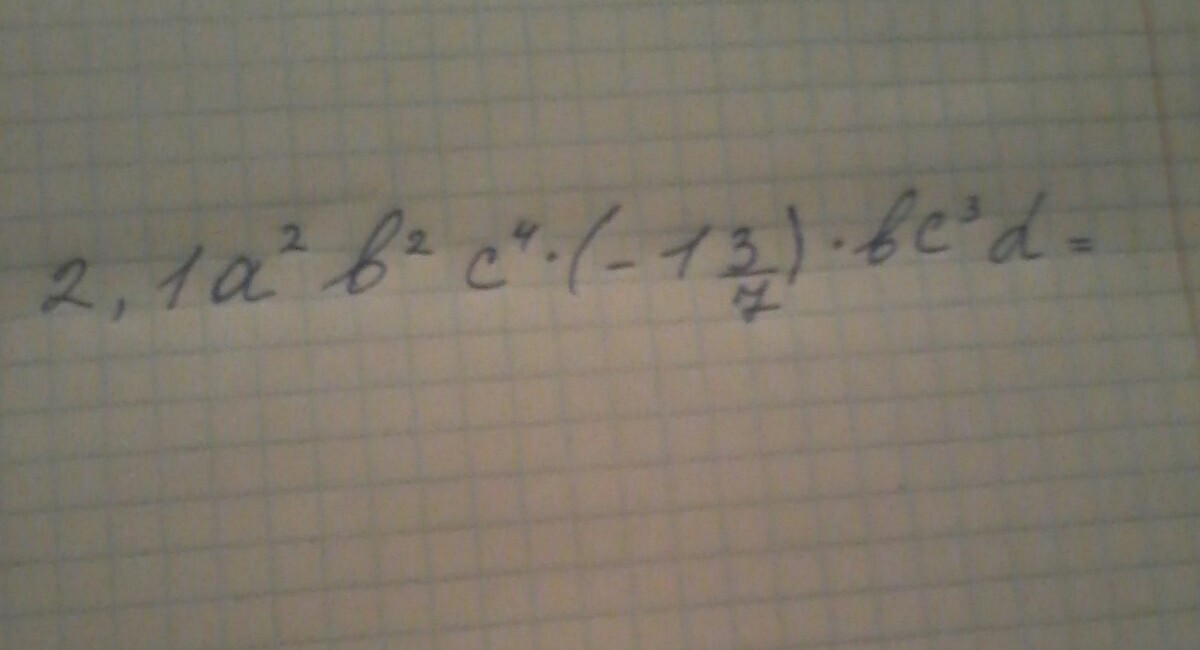 2,1a² b² c⁴·(-1 3/7)·bc³d=